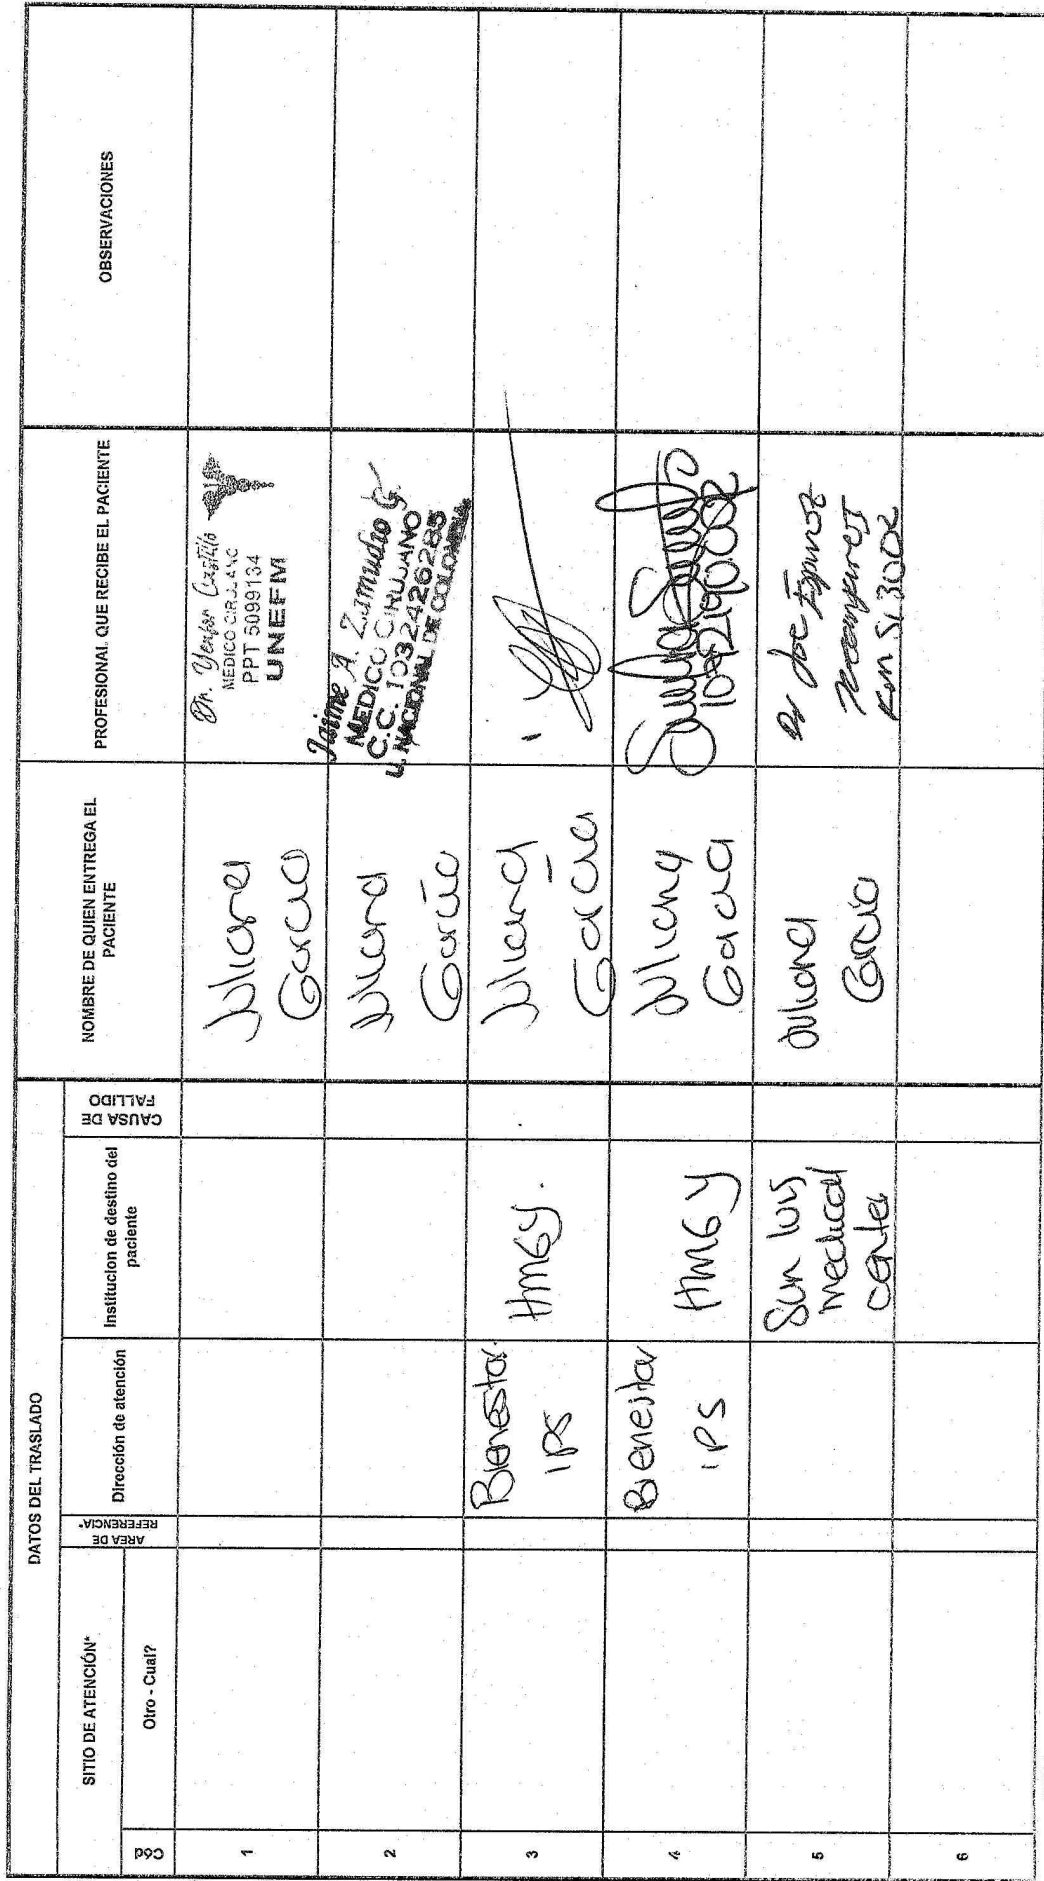 DATOS DEL TRASLADO
SITIO DE ATENCIÓN*
AREA DE REFERENCIA*
Dirección de atención
Institucion de destino del paciente
CAUSA DE FALLIDO
NOMBRE DE QUIEN ENTREGA EL PACIENTE
PROFESIONAL QUE RECIBE EL PACIENTE
OBSERVACIONES
Cód
Otro - Cual?
1
Juliana
Garcia
Dr. Yerson Castillo
MEDICO CIRUJANO
PPT 5099134
UNEFM
2
Juliana
García
Jaime A. Zamudio G.
MEDICO CIRUJANO
C.C. 1032426285
U. NACIONAL DE COLOMBIA
3
Bienestar
IPS
HMGY.
Juliana
Garcia
4
Bienestar
IPS
HMGY
Juliana
Garcia
5
San luis
medical
center
Juliana
Garcia
Dr Jose Espinoza
6